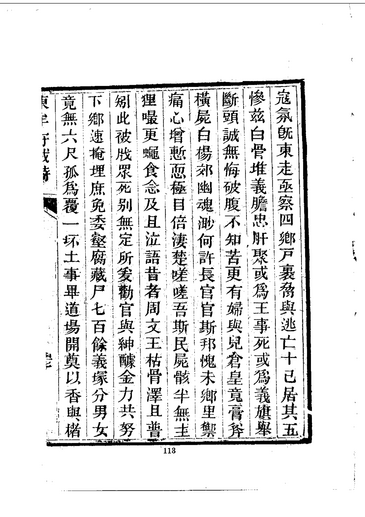 寇氛旣東走亟察四鄉戸裹脅與逃亡十已居其五
慘兹白骨堆義膽忠肝聚或爲王事死或爲義旗舉
斷頭誠無悔破腹不知苦更有婦與兒倉皇竟膏斧
橫屍白楊郊幽魂渺何許長官官斯邦愧未鄉里禦
痛心增慙恧極目倍淒楚嗟嗟吾斯民屍骸半無主
狸嘬更蠅食念及且泣語昔者周文王枯骨澤且普
矧此被戕眾死别無定所爰勸官與紳醵金力共努
下鄉速掩埋庶免委壑腐藏尸七百餘義塚分男女
竟無六尺孤爲覆一坏土事畢道場開奠以香與楮
東牟守城
113